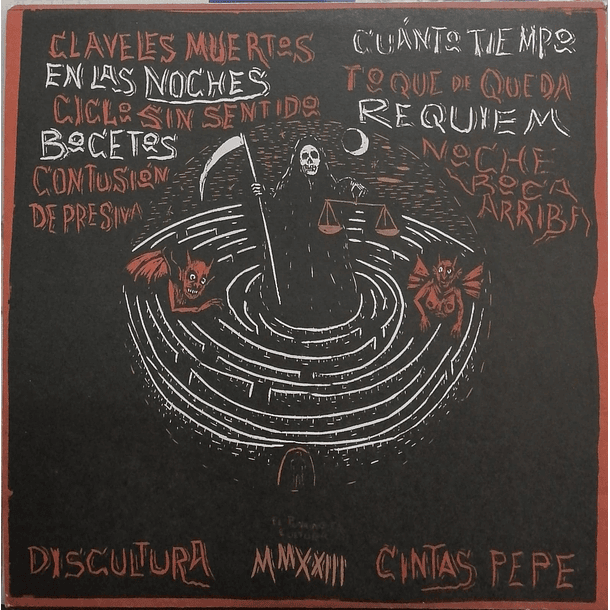 CLAVELES MUERTOS
EN LAS NOCHES
CICLO SIN SENTIDO
BOCETOS
CONTUSION
DEPRESIVA
CUÁNTO TIEMPO
TOQUE DE QUEDA
REQUIEM
NOCHE
BOCA
ARRIBA
DISCULTURA
MMXXIII
CINTAS PEPE